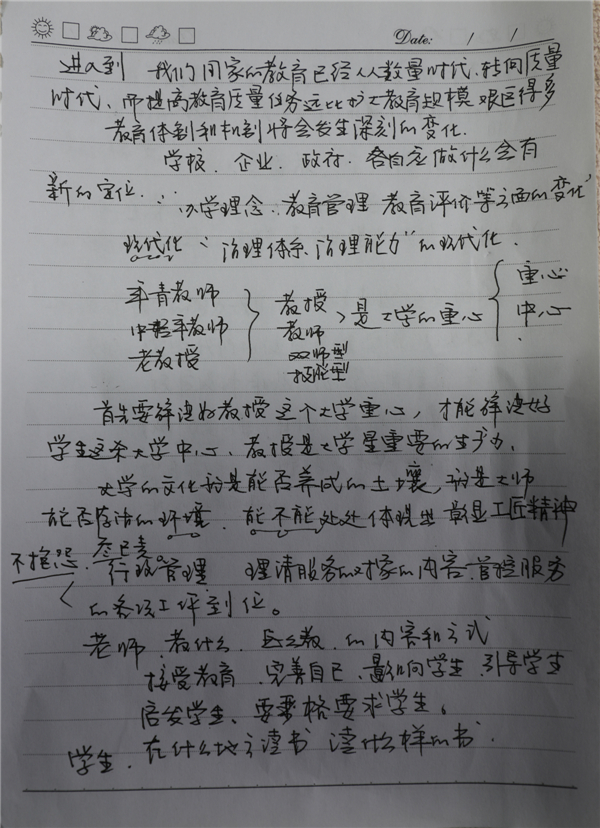 Date: / /
进入到 我们国家的教育已经从数量时代、转向质量
时代、而提高教育质量任务远比扩大教育规模艰巨得多
教育体制和机制将会发生深刻的变化.
学校、企业、政府、各自应做什么会有
新的定位.
办学理念、教育管理 教育评价等方面的变化
现代化 "治理体系、治理能力"的现代化.
年青教师
中年教师
老教授
教授
教师
双师型
技能型
是大学的重心
重心
中心
首先要 好教授这个大学重心,才能 好
学生这个大学中心、教授是大学最重要的生产力.
大学的文化 是能否养成的土壤, 是大师
能否存活的环境. 能不能处处体现出彰显工匠精神
不抱怨.
行政管理 理清服务的对象的内容.管控服务
的各项工 到位。
老师、教什么、怎么教、的内容和方式
接受教育、完善自己、影响向学生、引导学生
启发学生、要严格要求学生。
学生、在什么地方读书 读什么样的书.